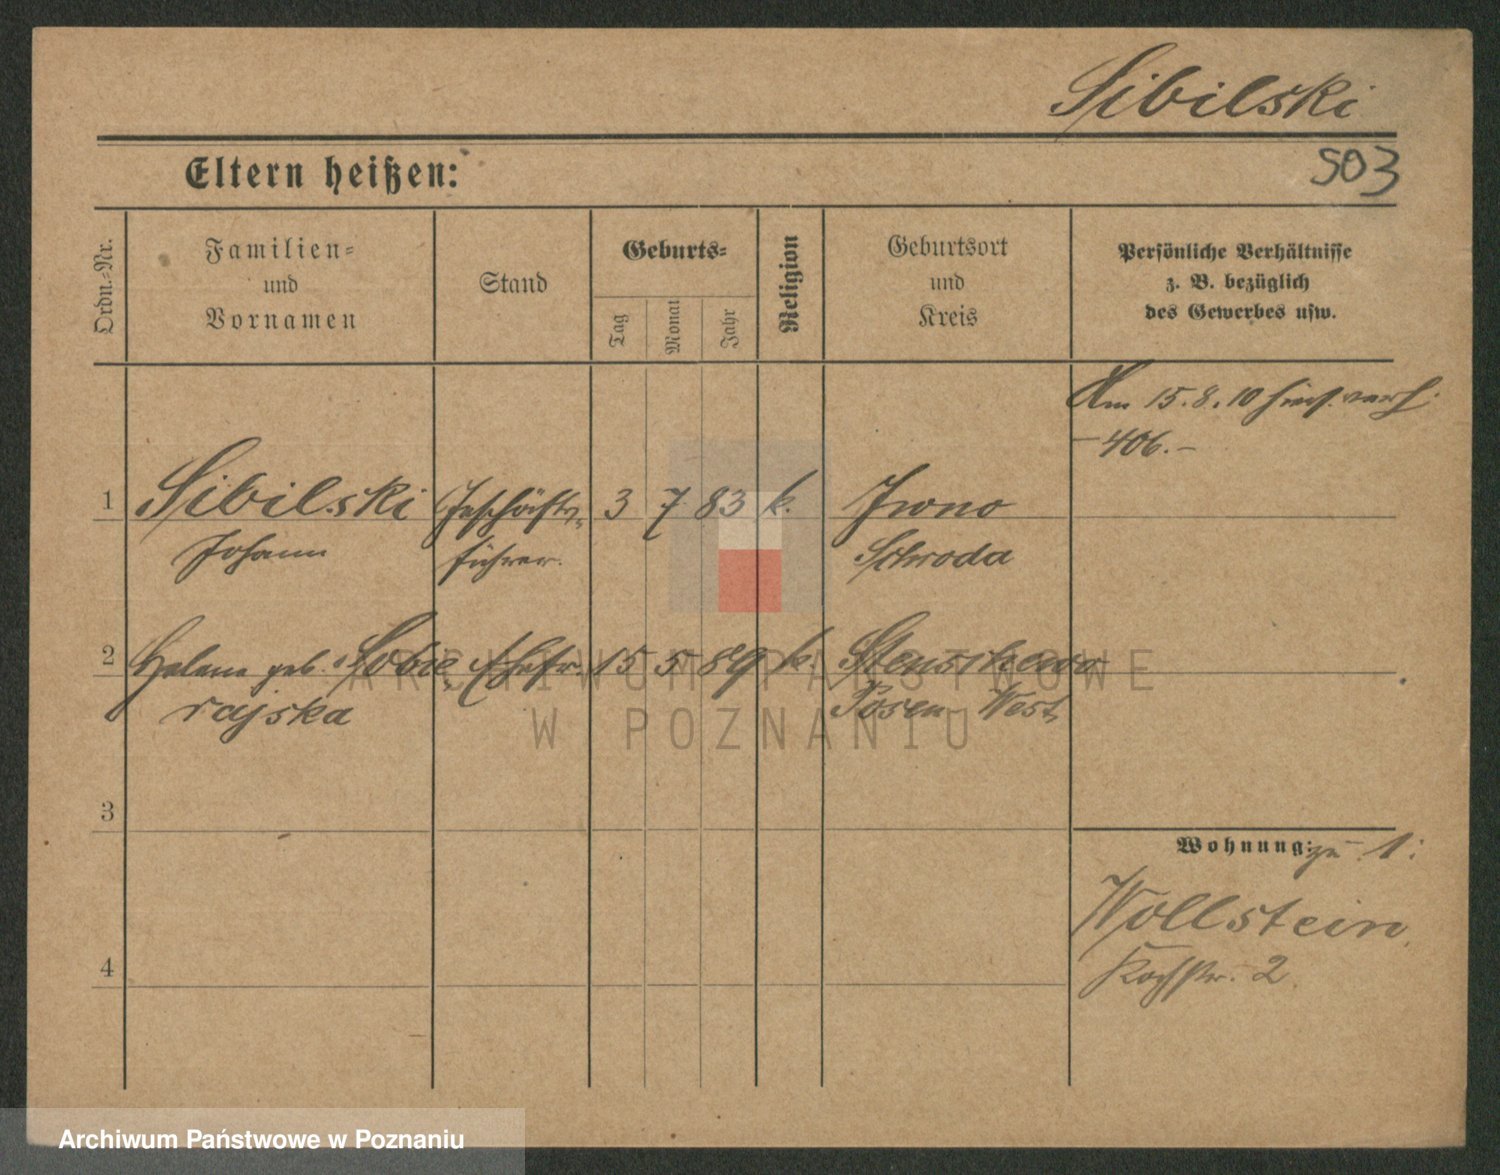 Sibilski
503
Eltern heißen:
Ordn.-Nr.
Familien- und Vornamen
Stand
Geburts-
Tag
Monat
Jahr
Religion
Geburtsort und Kreis
Persönliche Verhältnisse z. B. bezüglich des Gewerbes usw.
Am 15.8.10 hies. verh.
-406.-
1 Sibilski Geschäfts- 3 7 83 k. Iwno
Johann führer. Schroda
2 Helene geb. Sobie- Ehefr. 15 5 89 k. Stenschewo
rajska Posen West
3
Wohnung: zu 1:
Wollstein
4 Kochstr. 2
ARCHIWUM PAŃSTWOWE
W POZNANIU
Archiwum Państwowe w Poznaniu